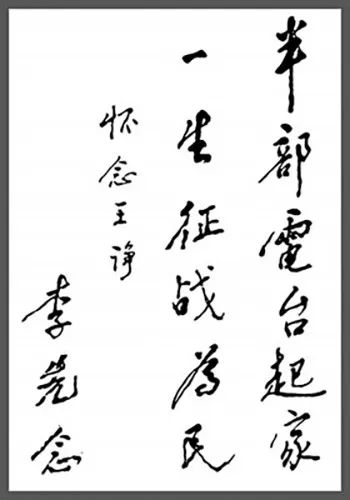 半部電台起家
一生征战為民
怀念王諍
李先念